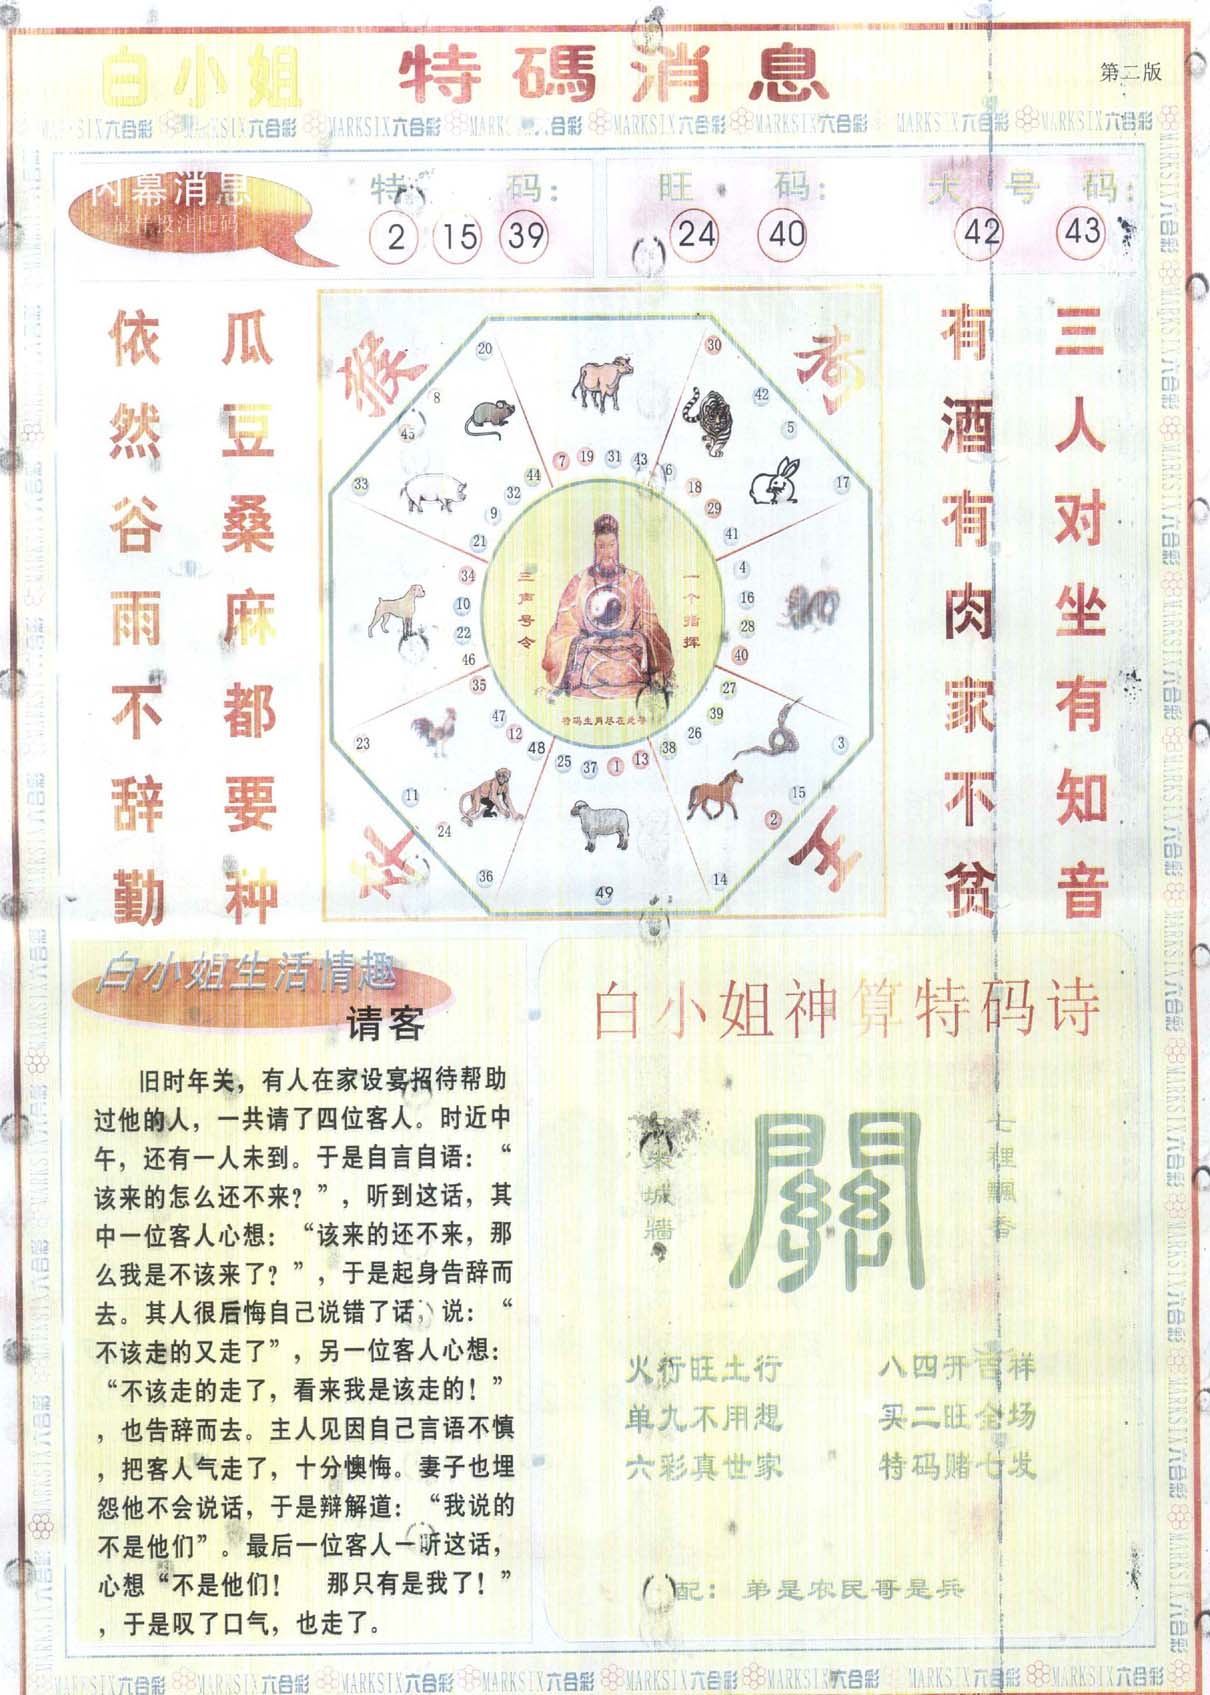 白小姐 特碼消息
第二版
MARKSIX六合彩 MARKSIX六合彩 MARKSIX六合彩 MARKSIX六合彩 MARKSIX六合彩 MARKSIX六合彩 MARKSIX六合彩 MARKSIX六合彩
内幕消息
最佳投注旺码
特码：
2 15 39
旺码：
24 40
大号码：
42 43
三人对坐有知音
有酒有肉家不贫
瓜豆桑麻都要种
依然谷雨不辞勤
20 8 45
30 42 5
33 17
44 32 9 21
7 19 31 43
6 18 29 41
34 10 22 46
4 16 28 40
一个指挥
三声号令
特码生肖尽在此寻
35 47 12
27 39
26 38
48 25 37 1 13
23 11 24 36
3 15 2 14
49
白小姐生活情趣
请客
旧时年关，有人在家设宴招待帮助
过他的人，一共请了四位客人。时近中
午，还有一人未到。于是自言自语：“
该来的怎么还不来？”，听到这话，其
中一位客人心想：“该来的还不来，那
么我是不该来了？”，于是起身告辞而
去。其人很后悔自己说错了话，说：“
不该走的又走了”，另一位客人心想：
“不该走的走了，看来我是该走的！”
，也告辞而去。主人见因自己言语不慎
，把客人气走了，十分懊悔。妻子也埋
怨他不会说话，于是辩解道：“我说的
不是他们”。最后一位客人一听这话，
心想“不是他们！ 那只有是我了！”
，于是叹了口气，也走了。
白小姐神算特码诗
七裡飄香
關
城牆
火行旺土行 八四开吉祥
单九不用想 买二旺全场
六彩真世家 特码赌七发
配：弟是农民哥是兵
MARKSIX六合彩 MARKSIX六合彩 MARKSIX六合彩 MARKSIX六合彩 MARKSIX六合彩 MARKSIX六合彩 MARKSIX六合彩 MARKSIX六合彩